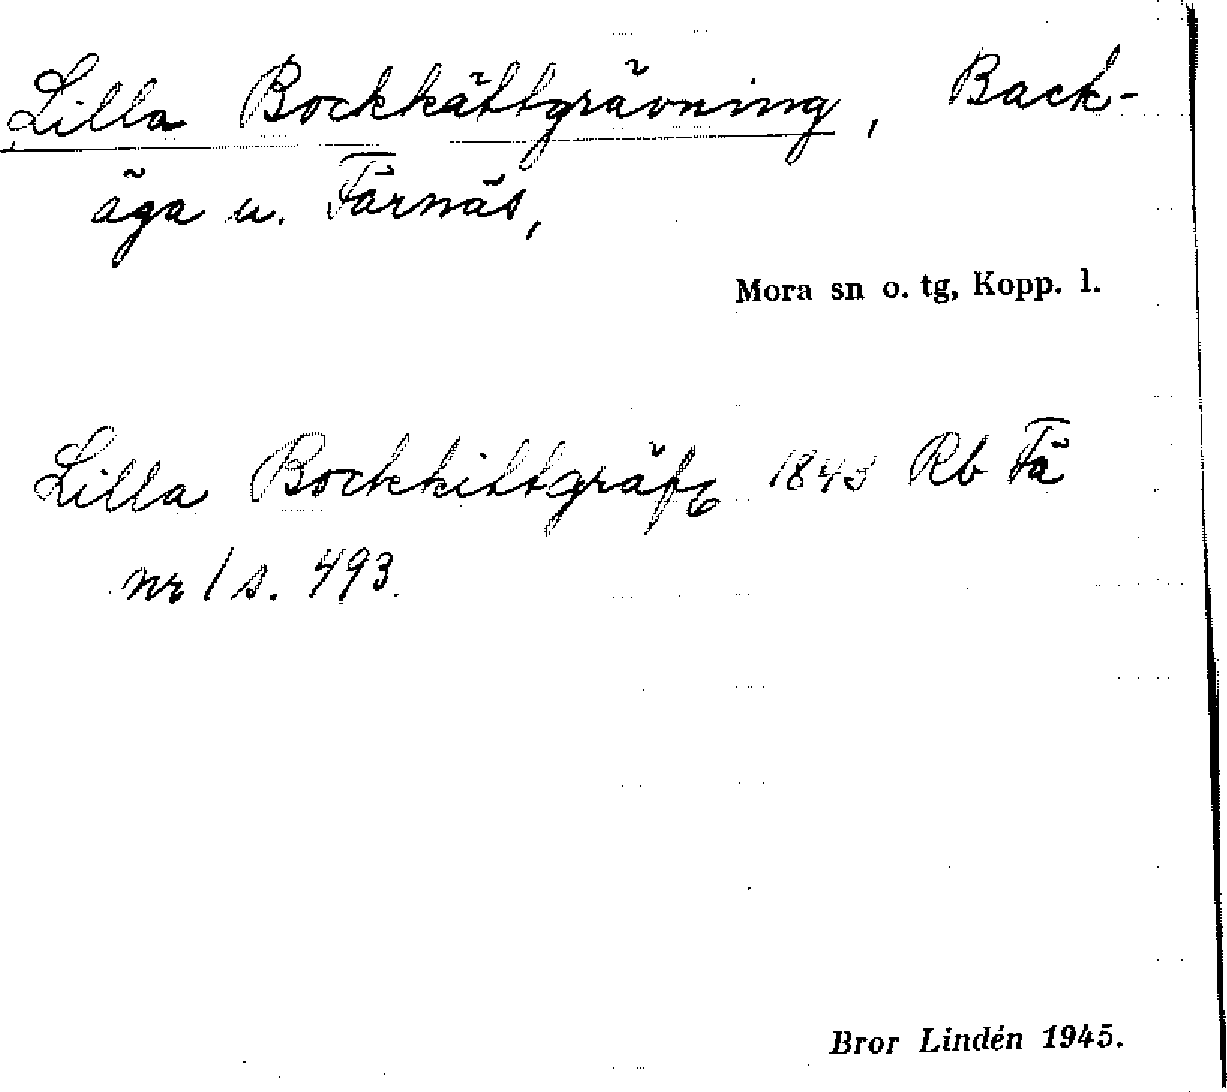 Lilla Bockkättgrävning, Back-
äga u. Färnäs,
Mora sn o. tg, Kopp. l.
Lilla Bockkittgräfg 1843 Rb Fä
nr 1 s. 493.
Bror Lindén 1945.